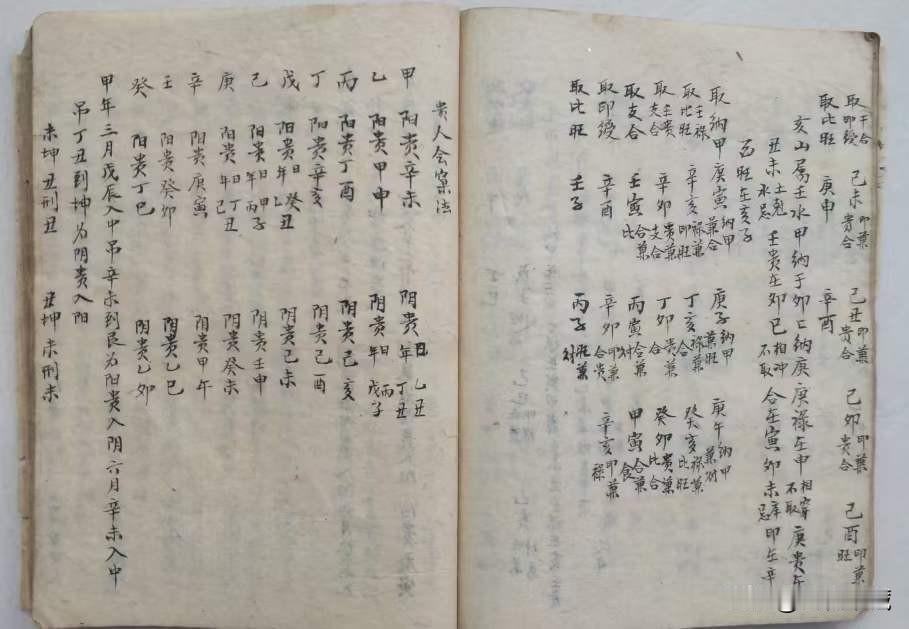 取印綬干合 己未印兼贵合 己丑印兼贵合 己卯印兼贵合 己酉印兼旺
取比旺 庚申 辛酉
亥山属壬水甲纳于卯亡纳庚庚禄在申相穿不取庚贵午
丑未土克水忌 壬贵在卯巳相冲不取 合在寅卯未库忌印在辛
酉旺在亥子
取纳甲 庚寅纳甲兼合 庚子纳甲兼旺 庚午纳甲兼财
取比旺壬禄 辛亥禄兼印旺 丁亥禄兼合 癸亥禄兼比旺
取支合壬贵 辛卯贵兼支合 丁卯贵兼合 癸卯贵兼比合
取支合 壬寅合兼比 丙寅合兼财 甲寅合兼食
取印綬 辛酉 辛卯印兼合贵 辛亥印兼禄
取比旺 壬子 丙子旺兼财
貴人会窠法
甲 阳贵辛未 阴贵日乙丑年丁丑
乙 阳贵甲申 阴贵日丙子年戊子
丙 阳贵丁酉 阴贵己亥
丁 阳贵辛亥 阴贵己酉
戊 阳贵日乙丑年癸丑 阴贵己未
己 阳贵日甲子年丙子 阴贵壬申
庚 阳贵日丁丑年己丑 阴贵癸未
辛 阳贵庚寅 阴贵甲午
壬 阳贵癸卯 阴贵乙巳
癸 阳贵丁巳 阴贵乙卯
甲年三月戊辰入中吊辛未到艮为阳贵入阴六月辛未入中
吊丁丑到坤为阴贵入阳
未坤丑刑丑 丑坤未刑未